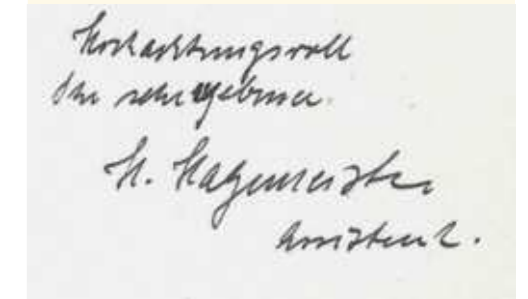 Hochachtungsvoll
Ihr sehr ergebener
H. Hagemeister
Assistent.